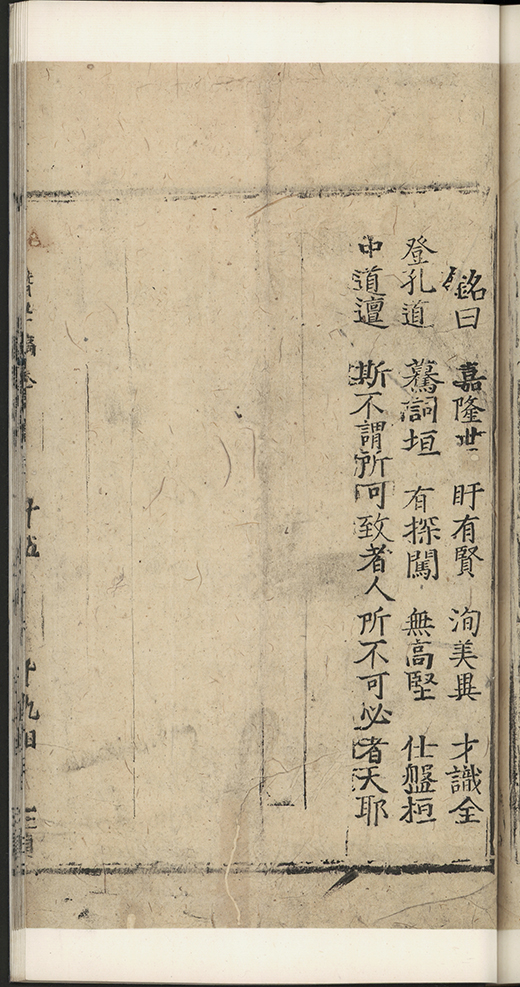 銘曰 嘉隆世 盱有賢 洵美異 才識全
登孔道 騫詞垣 有探闖 無高堅 仕盤桓
中道邅 斯不謂所可致者人所不可必者天耶